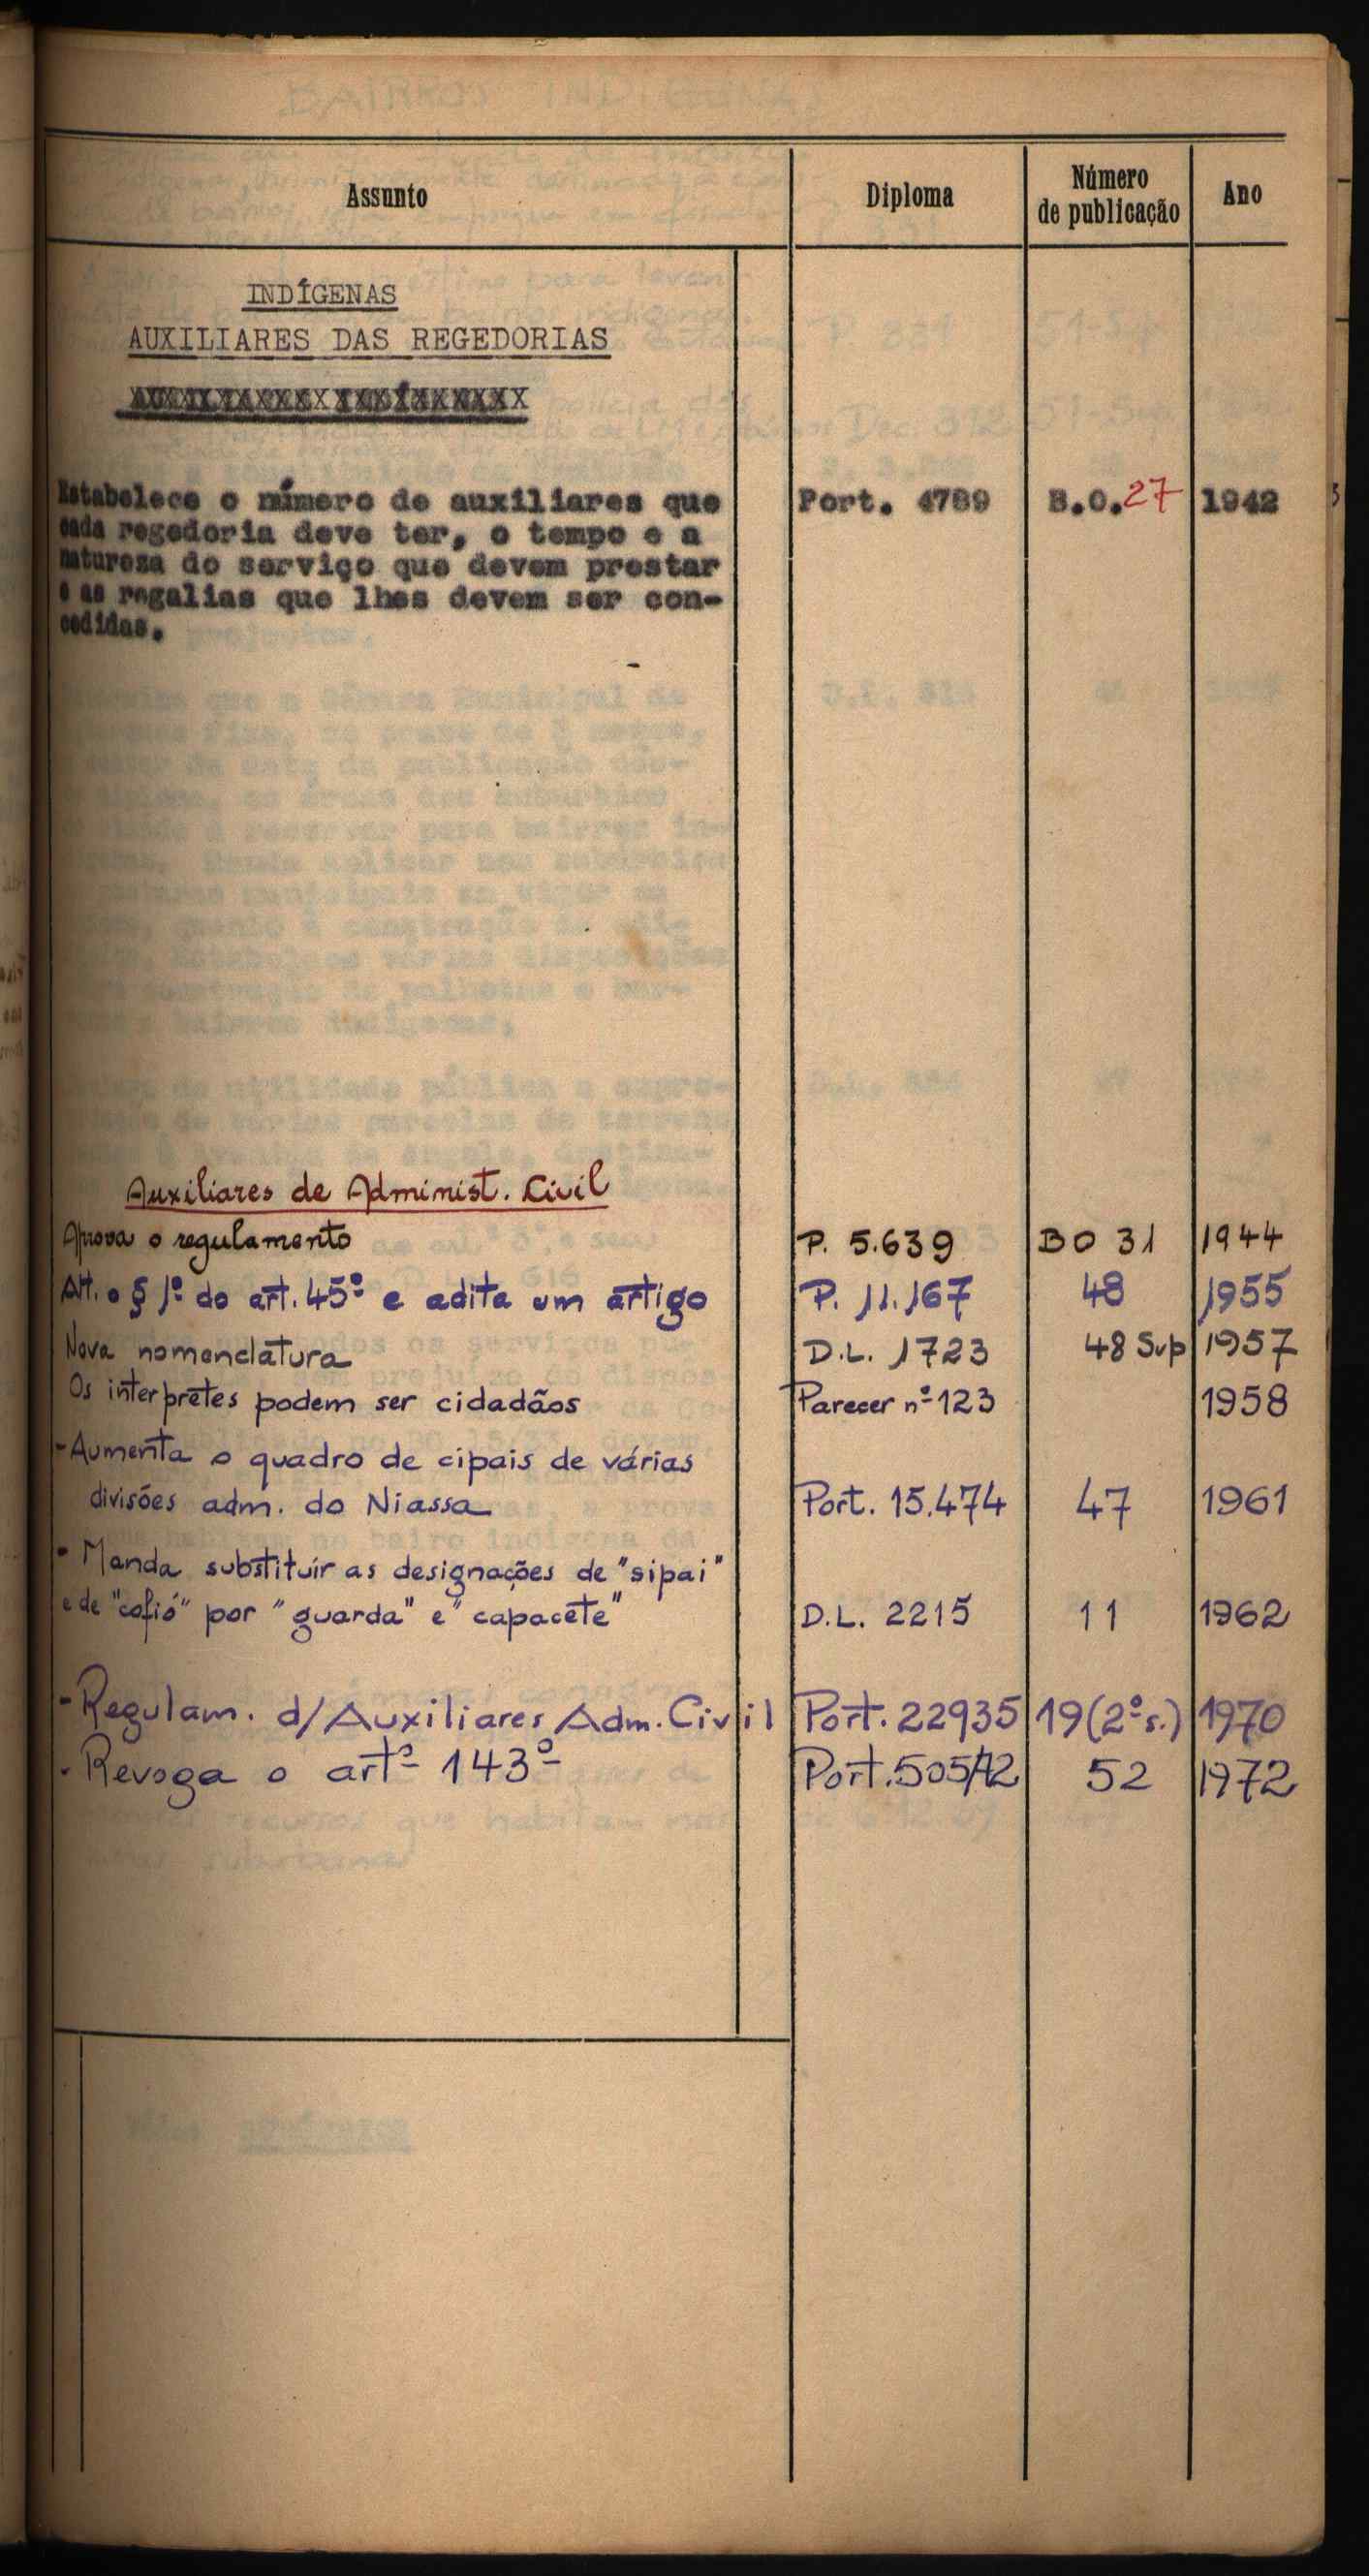 Assunto Diploma Número de publicação Ano
INDÍGENAS
AUXILIARES DAS REGEDORIAS
Estabelece o número de auxiliares que Port. 4789 B.O.27 1942
cada regedoria deve ter, o tempo e a
natureza do serviço que devem prestar
e as regalias que lhes devem ser con-
cedidas.
Auxiliares de Administ. Civil
Aprova o regulamento P. 5.639 BO 31 1944
Alt. o § 1º do art. 45º e adita um artigo P. 11.167 48 1955
Nova nomenclatura D.L. 1723 48 Sup 1957
Os interpretes podem ser cidadãos Parecer nº 123 1958
- Aumenta o quadro de cipais de várias
divisões adm. do Niassa Port. 15.474 47 1961
- Manda substituir as designações de "sipai"
e de "cofió" por "guarda" e "capacete" D.L. 2215 11 1962
- Regulam. d/ Auxiliares Adm. Civil Port. 22935 19 (2º s.) 1970
- Revoga o artº 143º Port. 505/72 52 1972